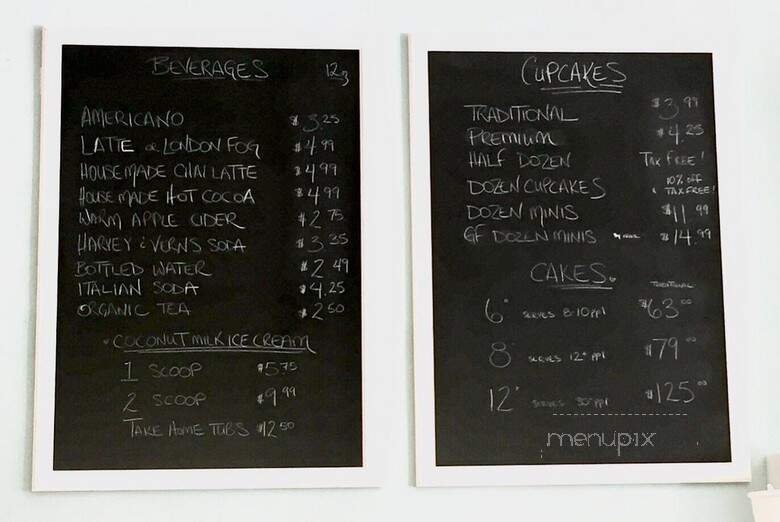 BEVERAGES 12
AMERICANO $3.25
LATTE or LONDON FOG $4.99
HOUSEMADE CHAI LATTE $4.99
HOUSEMADE HOT COCOA $4.99
WARM APPLE CIDER $2.75
HARVEY & VERNS SODA $3.35
BOTTLED WATER $2.49
ITALIAN SODA $4.25
ORGANIC TEA $2.50
COCONUT MILK ICE CREAM
1 SCOOP $5.75
2 SCOOP $9.99
TAKE HOME TUBS $12.50
CUPCAKES
TRADITIONAL $3.99
PREMIUM $4.25
HALF DOZEN TAX FREE!
DOZEN CUPCAKES 10% OFF
& TAX FREE!
DOZEN MINIS $11.99
GF DOZEN MINIS $14.99
CAKES
TRADITIONAL
6" SERVES 8-10 PPL $63.00
8" SERVES 12+ PPL $79.00
12" SERVES 30+ PPL $125.00
menupix